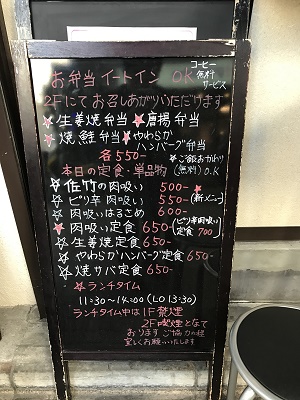 お弁当イートインOK コーヒー無料サービス
2Fにてお召しあがりいただけます
☆生姜焼弁当★唐揚弁当
☆焼鮭弁当★やわらかハンバーグ弁当
各550-
☆ご飯おかわり(無料)O.K
本日の定食・単品物
☆佐竹の肉吸い 500-
☆ピリ辛肉吸い 550-(新メニュー)
☆肉吸いはるさめ 600-
★肉吸い定食 650-(ピリ辛肉吸い定食 700)
☆生姜焼定食 650-
☆やわらかハンバーグ定食 650-
☆焼サバ定食 650-
☆ランチタイム
11:30~14:00(LO 13:30)
ランチタイム中は1F禁煙
2F喫煙となっております ご協力の程
宜しくお願いいたします